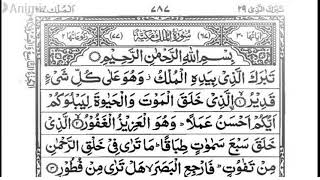 Animiz
تَبٰرَكَ الَّذِىْ ٢٩ ٧٨٧
اٰيَاتُهَا ٣٠ (٦٧) سُوْرَةُ الْمُلْكِ مَكِّيَّةٌ (٧٧) رُكُوْعَاتُهَا ٢
بِسْمِ اللهِ الرَّحْمٰنِ الرَّحِيْمِ
تَبٰرَكَ الَّذِىْ بِيَدِهِ الْمُلْكُ وَهُوَ عَلٰى كُلِّ شَىْءٍ
قَدِيْرُ الَّذِىْ خَلَقَ الْمَوْتَ وَالْحَيٰوةَ لِيَبْلُوَكُمْ
اَيُّكُمْ اَحْسَنُ عَمَلًا وَهُوَ الْعَزِيْزُ الْغَفُوْرُ الَّذِىْ
خَلَقَ سَبْعَ سَمٰوٰتٍ طِبَاقًا مَا تَرٰى فِىْ خَلْقِ الرَّحْمٰنِ
مِنْ تَفٰوُتٍ فَارْجِعِ الْبَصَرَ هَلْ تَرٰى مِنْ فُطُوْرٍ